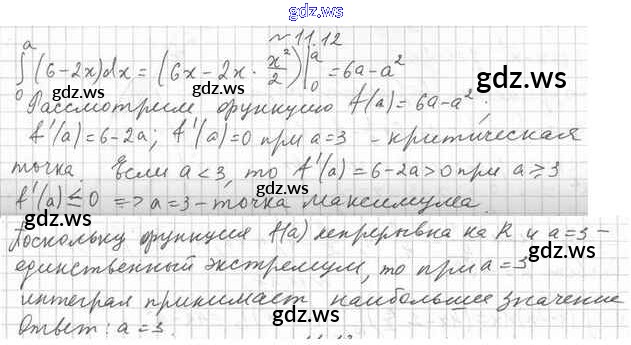 gdz.ws
№ 11.12
a
∫ (6-2x)dx = (6x - 2x · x²/2) |ₐ₀ = 6a - a²
0 Рассмотрим функцию f(a) = 6a - a²;
gdz.ws gdz.ws
f'(a) = 6-2a; f'(a) = 0 при a = 3 - критическая
точка. Если a < 3, то f'(a) = 6-2a > 0 при a ≥ 3
gdz.ws
f'(a) ≤ 0 => a = 3 - точка максимума.
gdz.ws gdz.ws
Поскольку функция f(a) непрерывна на R и a = 3 -
единственный экстремум, то при a = 3
gdz.ws
интеграл принимает наибольшее значение
Ответ: a = 3.
gdz.ws gdz.ws